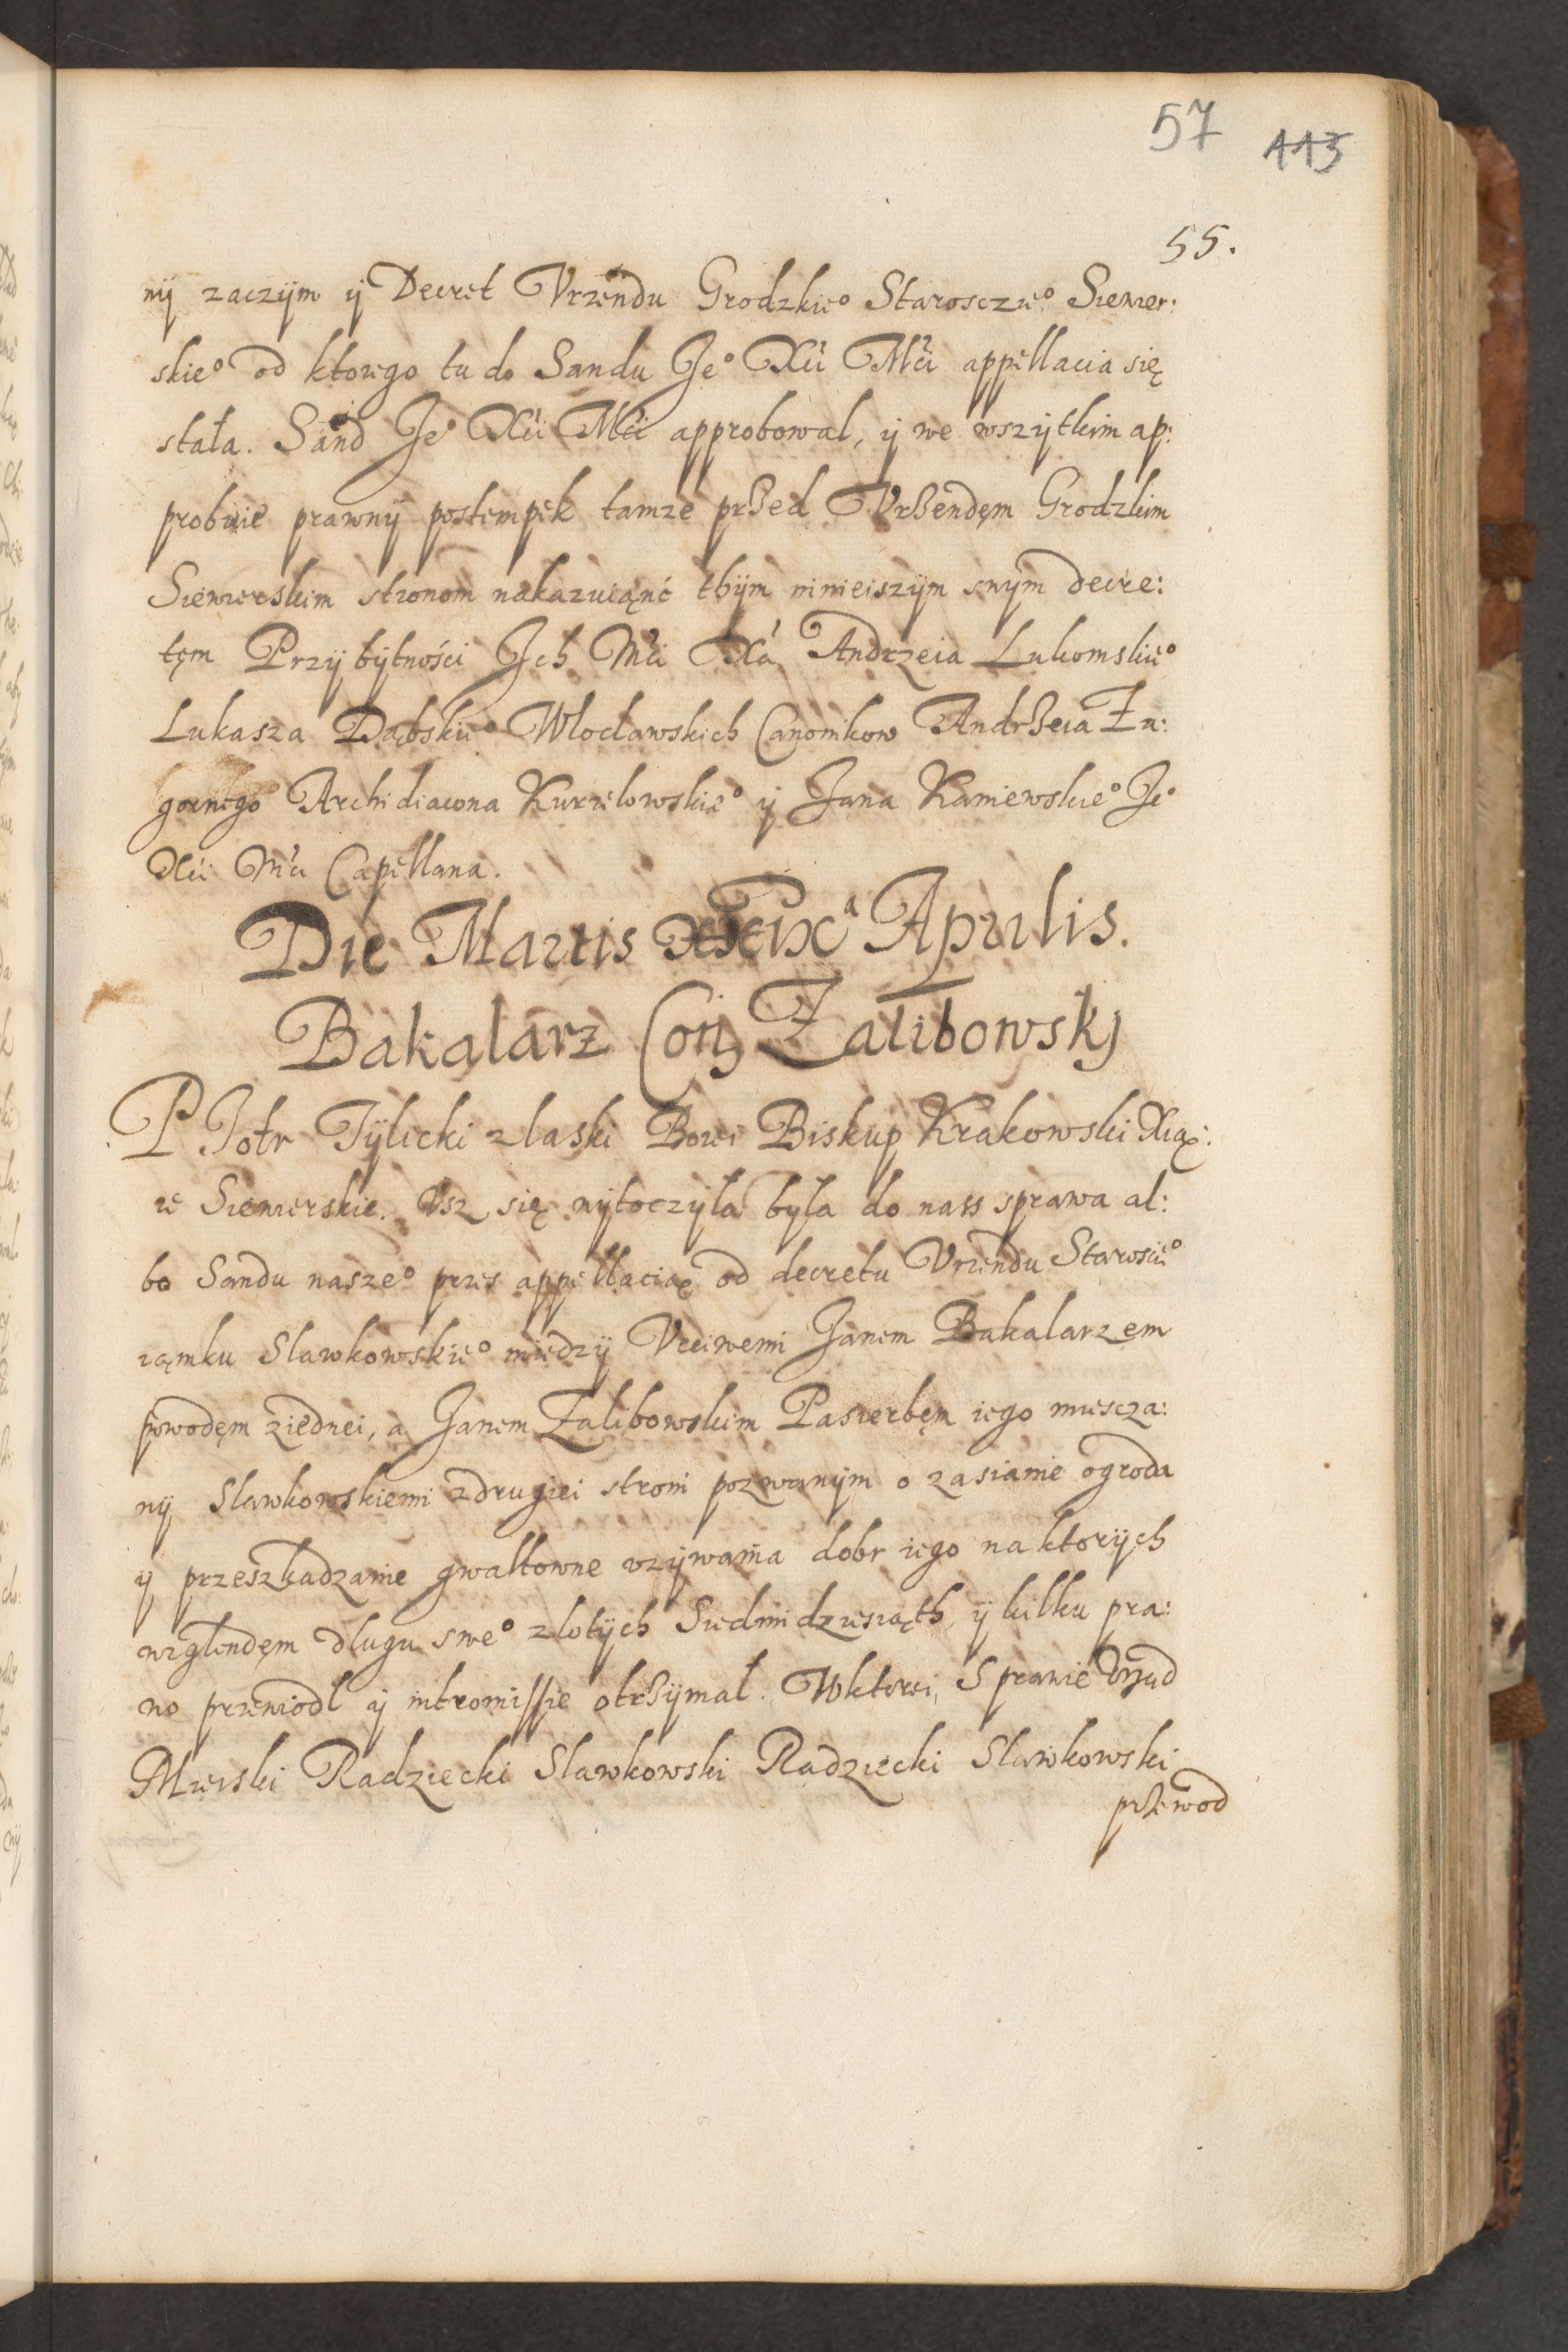 57 113
55.
nij zaczijm ij Decret Vrzendu Grodzkie° Staroscze° Siewier:
skie° od ktorego tu do Sandu Je° Xći Mći appellacia się
stała. Sand Je° Xći Mći approbował, ij we wszijtkim ap:
probuie prawnij postempek tamze przed Vrzendęm Grodzkim
Siewierskim stronom nakazuiąnć thijm ninieiszijm swijm decre:
tęm Przij bijtności Jch Mći Xa Andrzeia Lukomskie°
Lukasza Dąbskie° Włocławskich Canonikow Andrzeia Za:
gornego Archidiacona Kurzelowskie° ij Jana Kaniewskie° Je°
Xći Mći Capellana.
Die Martis xxix<sup>a</sup> Aprilis.
Bakalarz Con Zalibowskj
PJotr Tijlicki z łaski Bozei Biskup Krakowski Xiąz:
ze Siewierskie. Isz się wijtoczijła była do nass sprawa al:
bo Sandu nasze° przes appellacią od decretu Vrzendu Staroscie°
zamku Sławkowskie° miedzij Vcciwemi Janem Bakalarzem
powodęm z iednei, a Janem Zalibowskim Pasierbęm iego miescza:
nij Sławkowskiemi z drugiei stroni pozwanijm o zasianie ogroda
ij przeszkadzanie gwałtowne vzijwania dobr iego na ktorijch
wzglendęm dlugu swe° złotijch Siedmidziesiąth ij kilku pra:
wo przewiodł ij intromissie otrzijmał. W ktorei Sprawie Vrząd
Mieiski Radziecki Sławkowski Radziecki Sławkowski
przewod